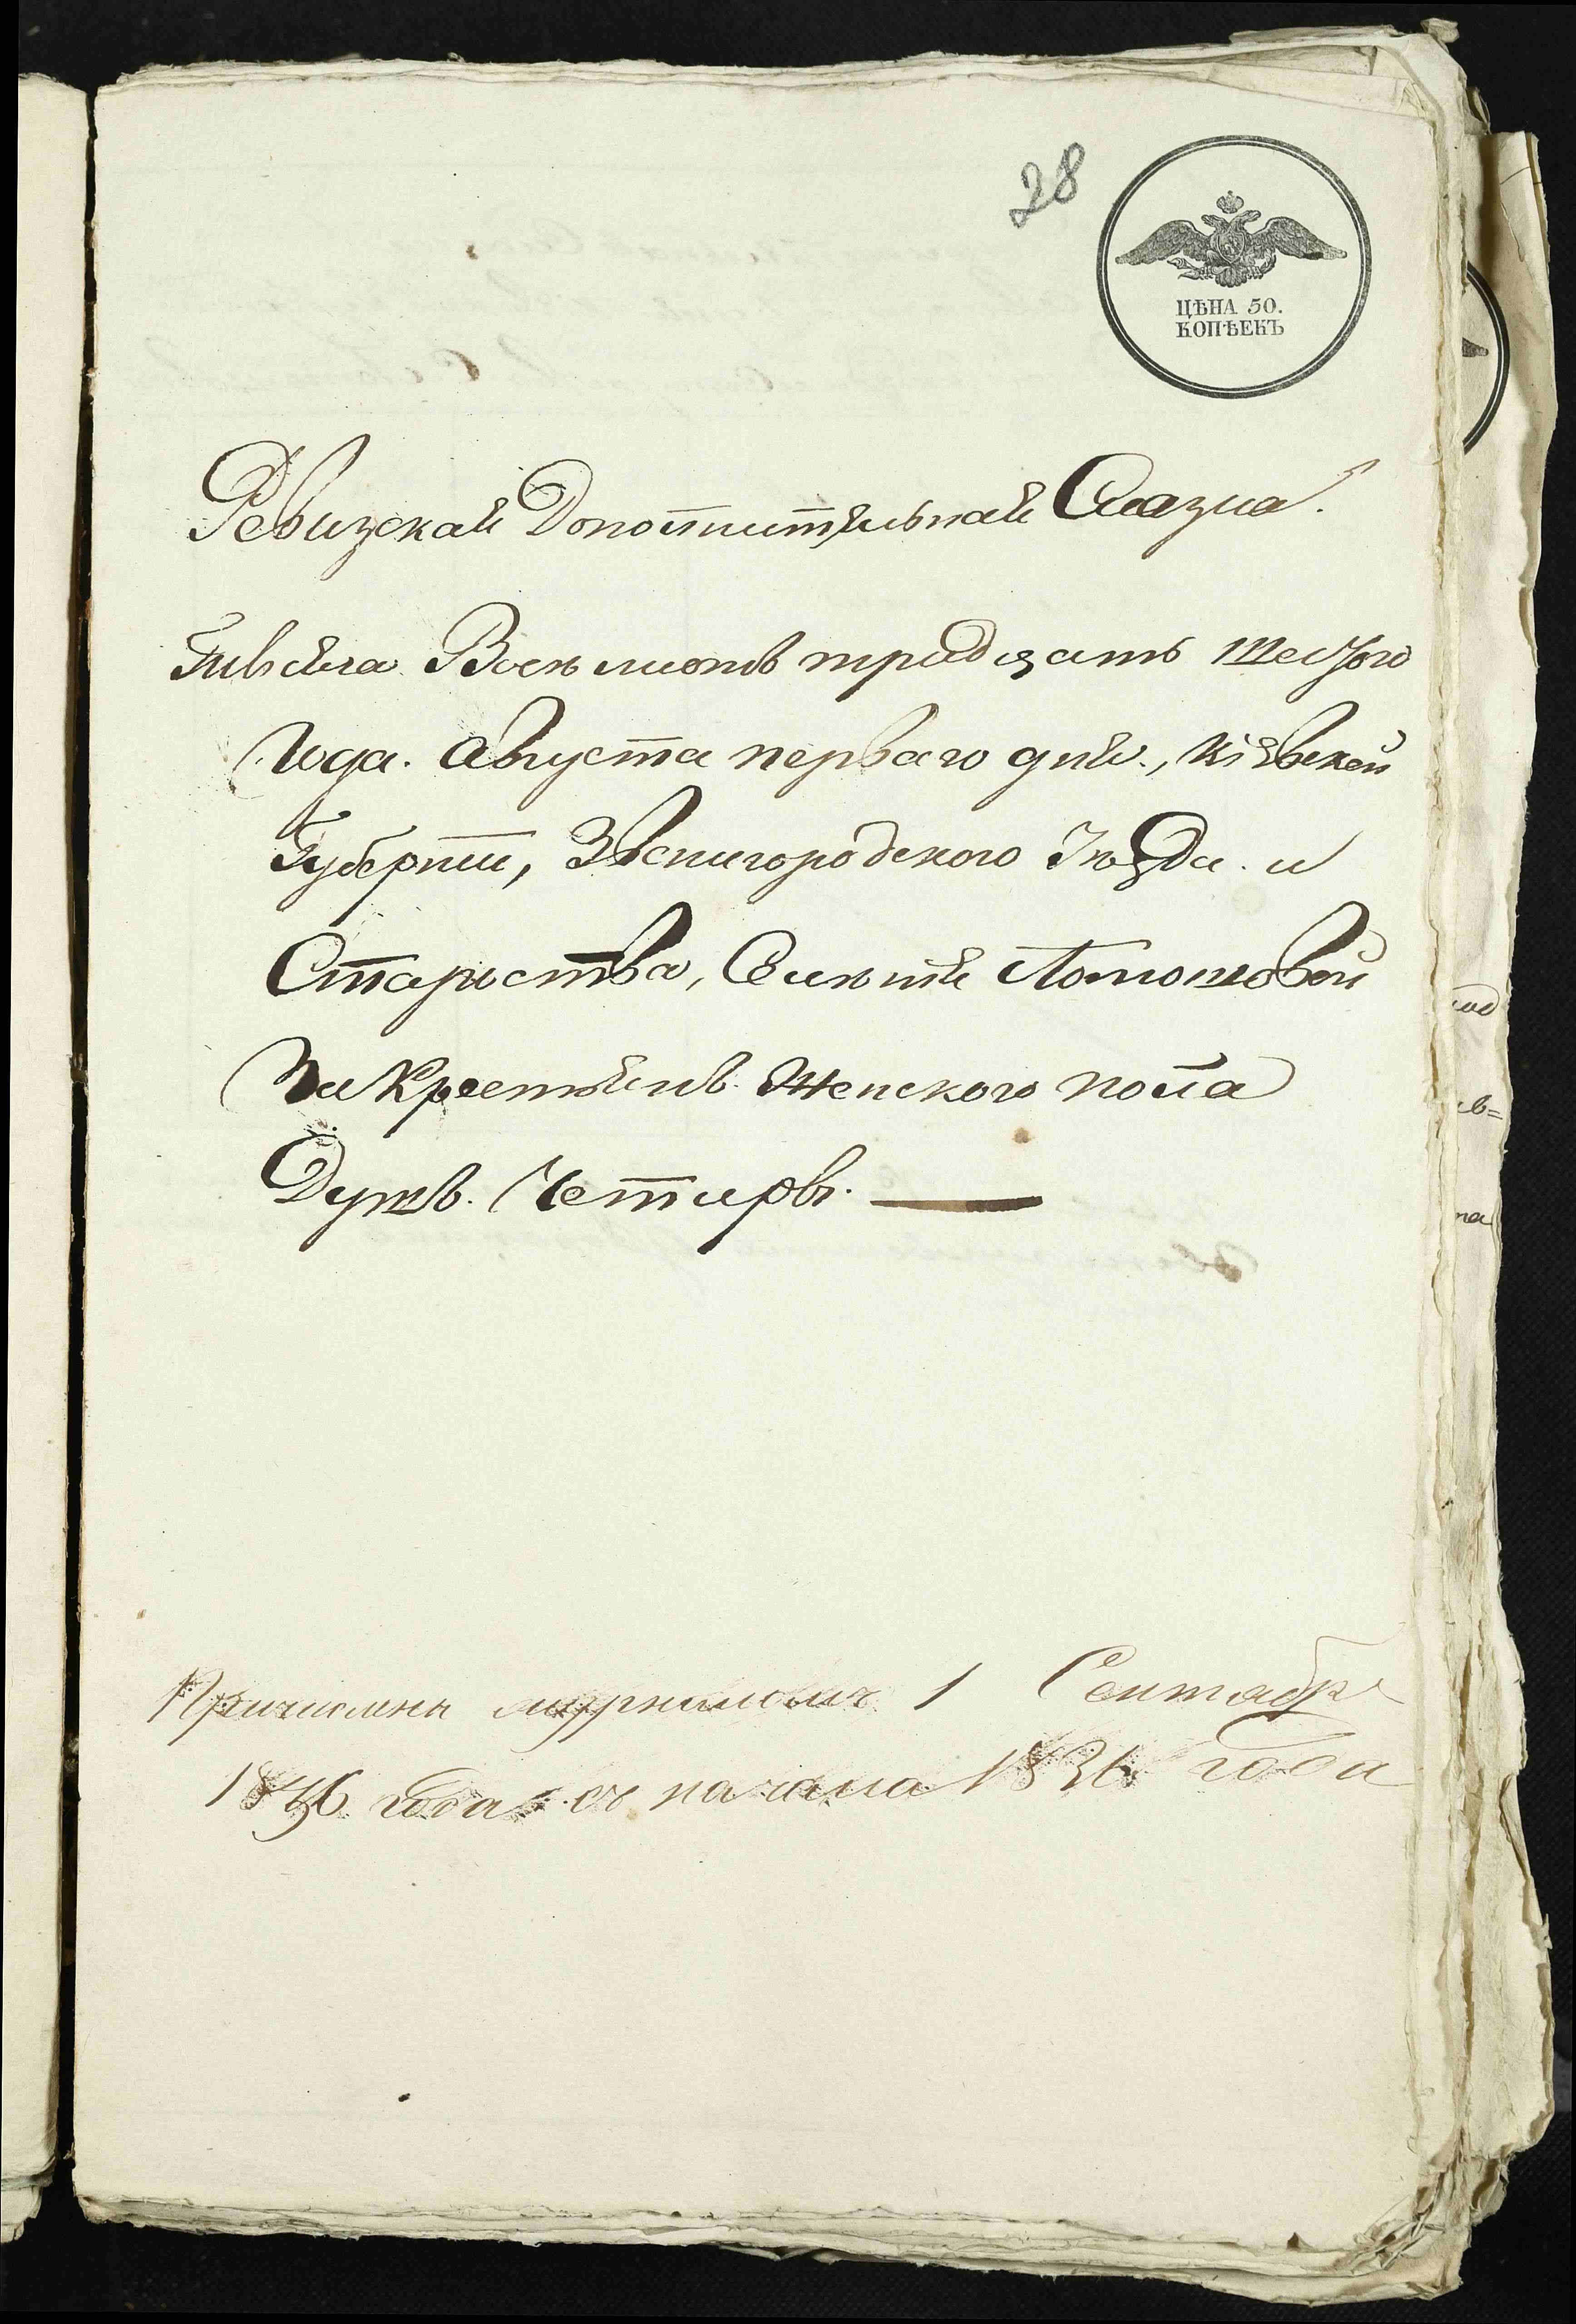 28
ЦѢНА 50.
КОПѢЕКЪ
Ревизская Дополнительная Сказка.
Тысяча Восемьсотъ тридцять шестого
Года. Августа перваго дня., Кіевской
Губерніи, Звенигородского Уѣзда. и
Староства, Селенія
На Крестянъ. Женского пола
Душъ. Четыре.
Причислены 1 Сентября
1836 года съ начала 1836 года